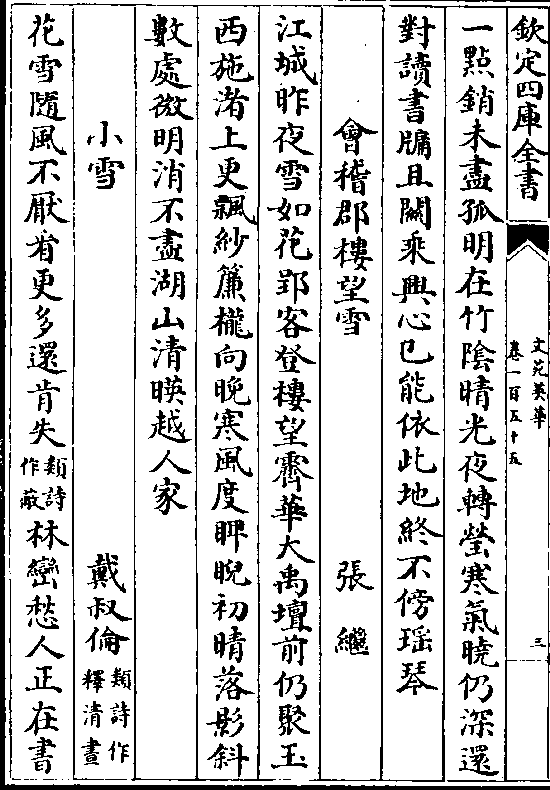 欽定四庫全書
文苑英華
卷一百五十五
三
一點銷未盡孤明在竹陰晴光夜轉瑩寒氣曉仍深還
對讀書牖且闕乘興心已能依此地終不傍瑶琴
會稽郡樓望雪 張繼
江城昨夜雪如花郢客登樓望霽華大禹壇前仍聚玉
西施渚上更飄紗簾櫳向晚寒風度睥睨初晴落影斜
數處微明消不盡湖山清暎越人家
小雪 戴叔倫類詩作釋清晝
花雪隨風不厭看更多還肯失類詩作蔽林巒愁人正在書